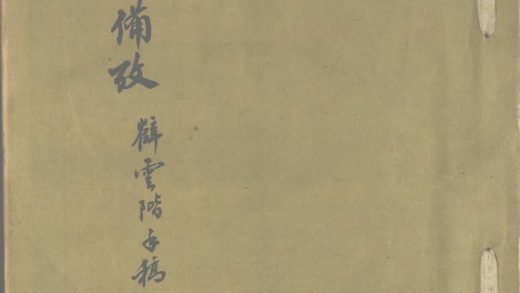 備攷
薛雲階手稿